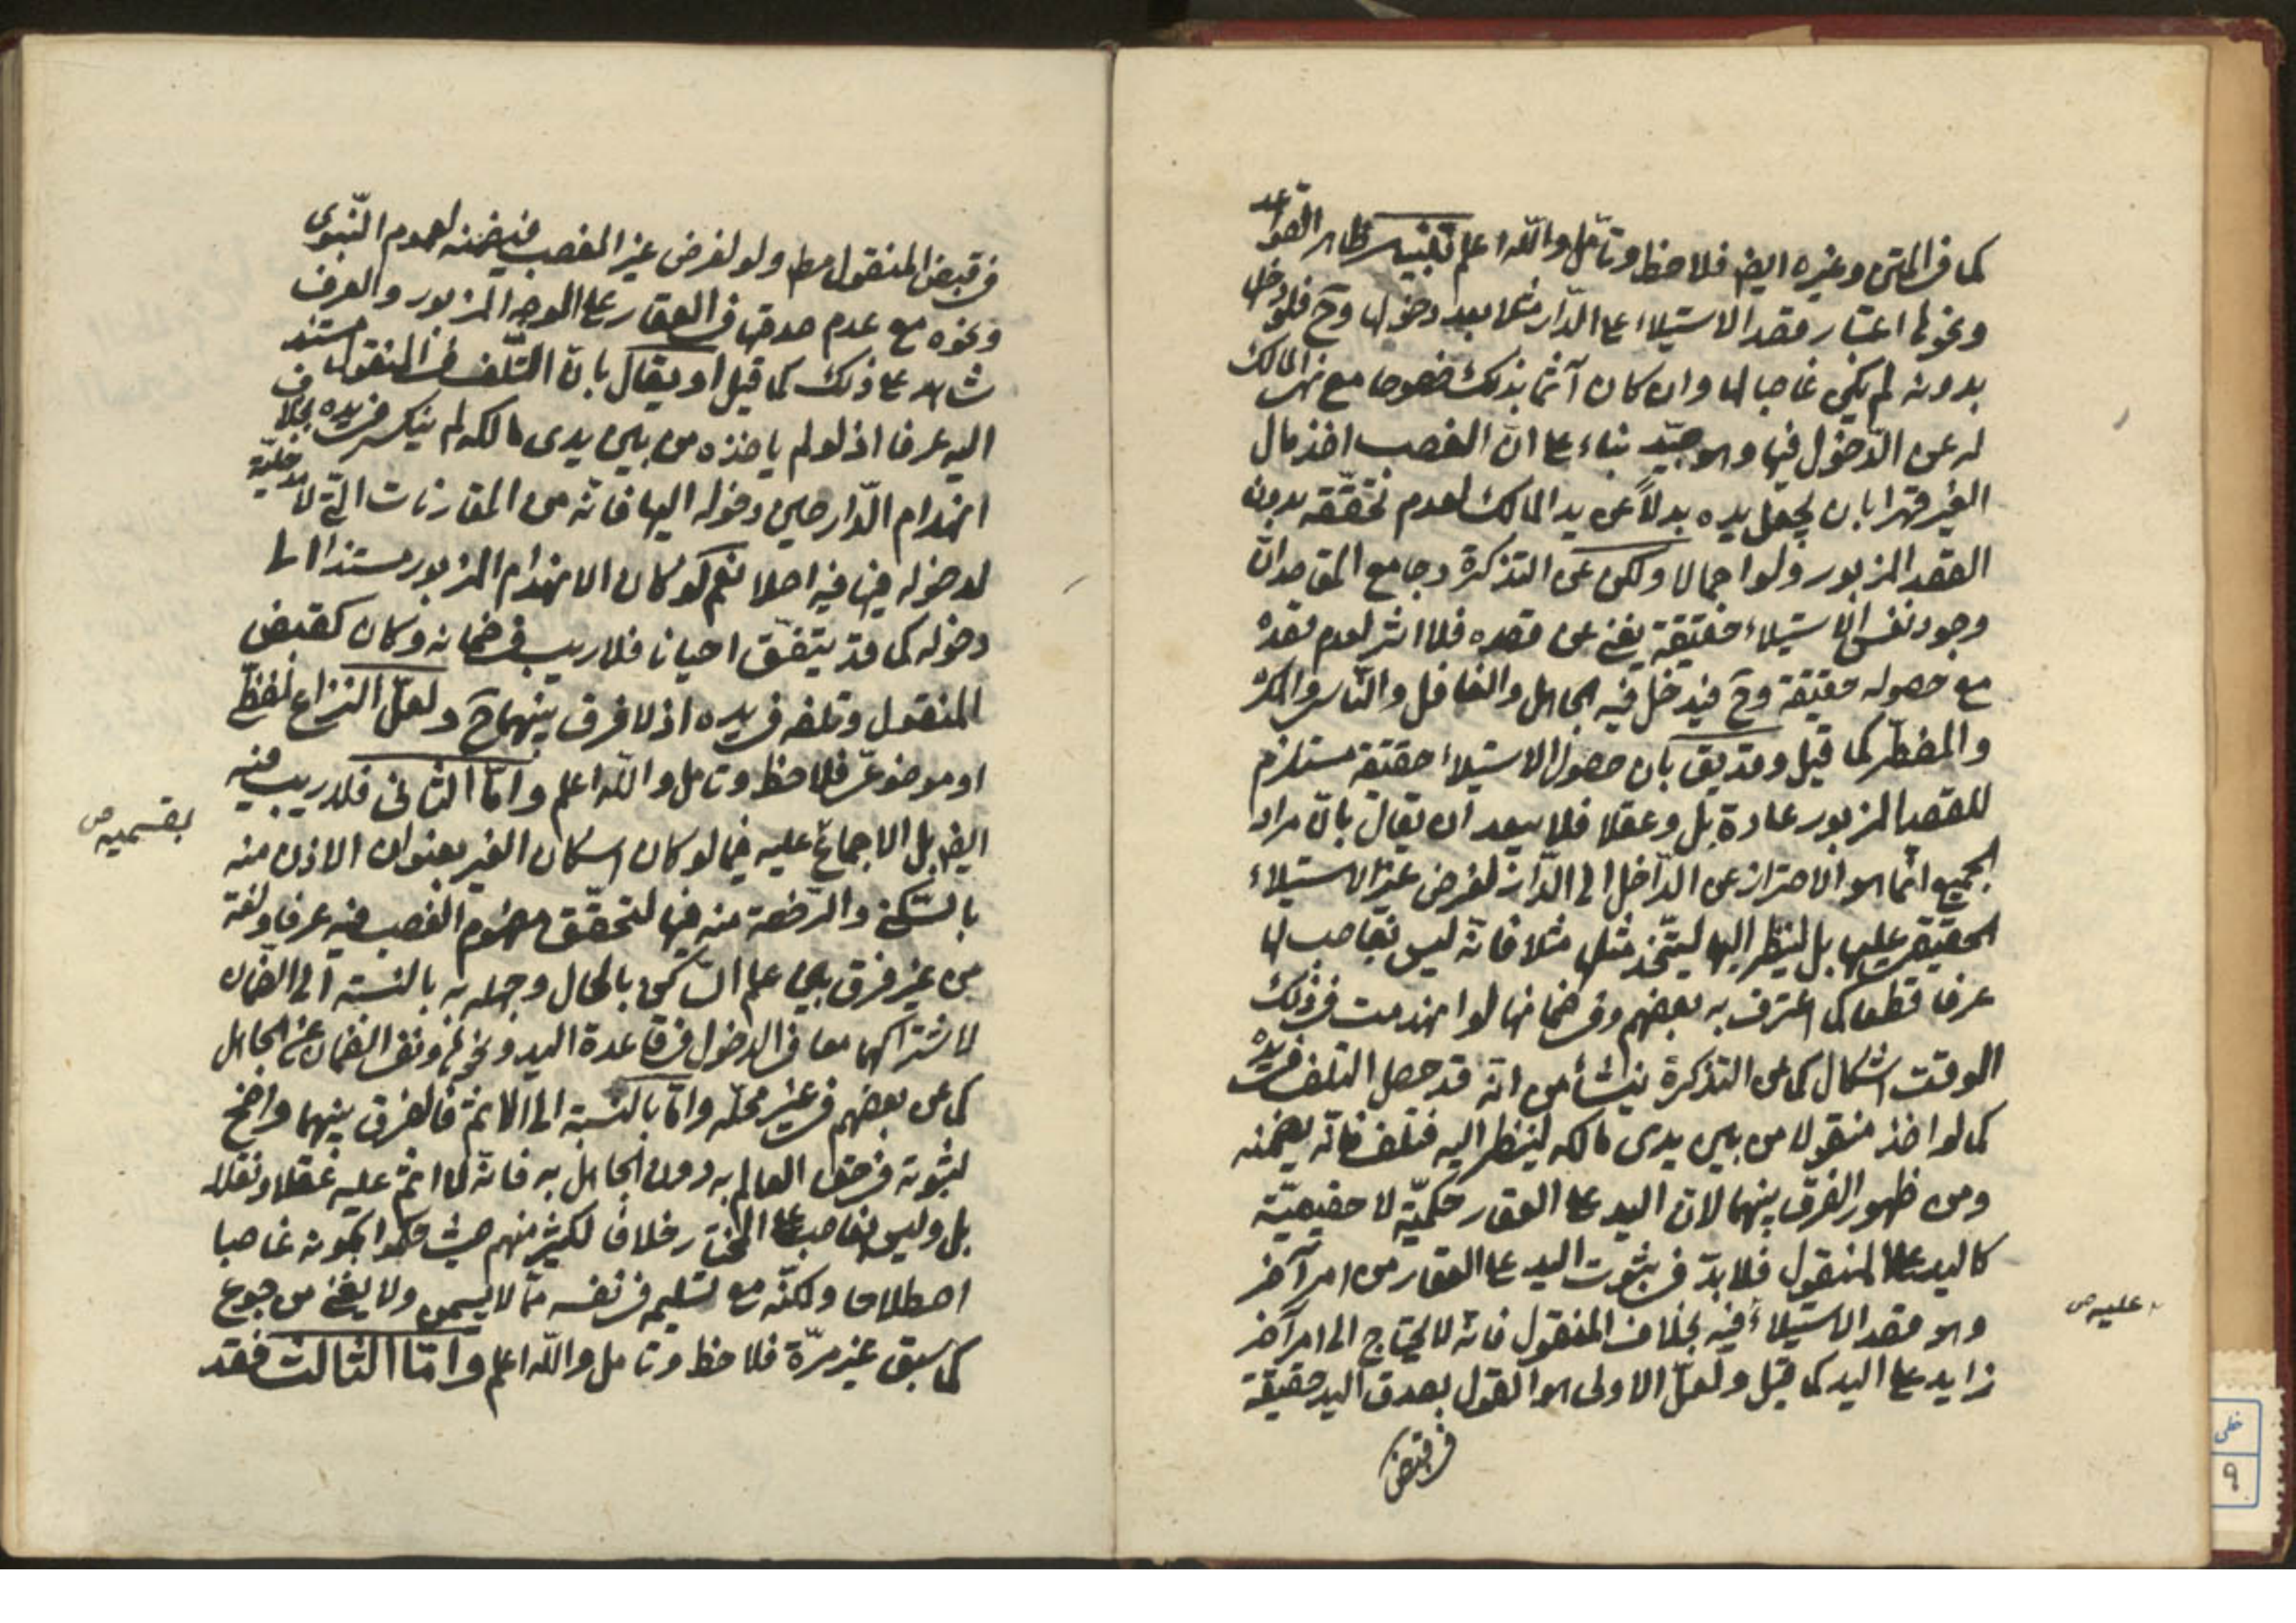 كما فى المتن وغيره ايضا فلاحظ وتأمل والله اعلم تنبيه ظاهر القواعد
ونحوها اعتبار قصد الاستيلاء على الدار مثلا بعد دخولها وح فلو دخل
بدونه لم يكن غاصبا لها وان كان آثما بذلك خصوصا مع نهى المالك
له عن الدّخول فيها وهو جيّد بناء على انّ الغصب اخذ مال
الغير قهرا بان يجعل يده بدلاً عن يد المالك لعدم تحقّقه بدون
القصد المزبور ولو اجمالا ولكن عن التذكرة وجامع المقاصد انّ
وجود نفس الاستيلاء حقيقة يغنى عن قصده فلا اثر لعدم قصده
مع حصوله حقيقة وح فيدخل فيه الجاهل والغافل والناسى والمكره
والمضطر كما قيل وقد يق بان حصول الاستيلاء حقيقة مستلزم
للقصد المزبور عادة بل وعقلا فلا يبعد ان يقال بانّ مراد
الجميع انّما هو الاحتراز عن الدّاخل الى الدّار لغرض غير الاستيلاء
الحقيقى عليها بل لينظر اليها ليتّخذ مثلها مثلا فانّه ليس بغاصب لها
عرفا قطعا كما اعترف به بعضهم وفى ضمانها لو انهدمت فى ذلك
الوقت اشكال كما عن التذكرة ينشأ من انّه قد حصل التلف فى يده
كما لو اخذ منقولا من بين يدى مالكه لينظر اليه فتلف فانّه يضمنه
ومن ظهور الفرق بينهما لانّ اليد على العقار حكميّة لا حقيقيّة
كاليد على المنقول فلا بدّ فى ثبوت اليد على العقار من امر آخر
عليه ص
وهو قصد الاستيلاء فيه بخلاف المنقول فانّه لا يحتاج الى امر آخر
زايد على اليد كما قيل ولعلّ الاولى هو القول بصدق اليد حقيقة
فى قبض
فى قبض المنقول مط ولو لغرض غير الغصب فيضمنه لعموم النّبوى
ونحوه مع عدم صدقها فى العقار على الوجه المزبور والعرف
شاهد على ذلك كما قيل او يقال بانّ التّلف فى المنقول مستند
اليه عرفا اذ لو لم ياخذه من بين يدى مالكه لم ينكسر فى يده بخلاف
انهدام الدّار حين دخوله اليها فانّه من المقارنات التّى لا مدخليّة
لدخوله فيها فيه اصلا نعم لو كان الانهدام المزبور مستندا الى
دخوله كما قد يتّفق احيانا فلا ريب فى ضمانه وكان كقبض
المنقول وتلفه فى يده اذ لا فرق بينهما ح ولعلّ النزاع لفظىّ
او موضوعىّ فلاحظ وتامل والله اعلم وامّا الثانى فلا ريب فيه
بقسميه ص
ايضا بل الاجماع عليه فيما لو كان اسكان الغير بعنوان الاذن منه
بالسّكنى والرّخصة منه فيها لتحقّق مفهوم الغصب فيه عرفا ولغة
من غير فرق بين علم السّاكن بالحال وجهله به بالنسبة الى الضّمان
لاشتراكهما معا فى الدخول فى قاعدة اليد ونحوها ونفى الضمان عن الجاهل
كما عن بعضهم فى غير محلّه وامّا بالنّسبة الى الاثم فالفرق بينهما واضح
لثبوته فى حق العالم به دون الجاهل به فانّه لا اثم عليه عقلا ونقلا
بل وليس بغاصب على المختار خلافا لكثير منهم حيث حكموا بكونه غاصبا
اصطلاحا ولكنّه مع تسليمه فى نفسه ممّا لا يسمن ولا يغنى من جوع
كما سبق غير مرّة فلاحظ وتامل والله اعلم وامّا الثالث فقد
خطى
٩